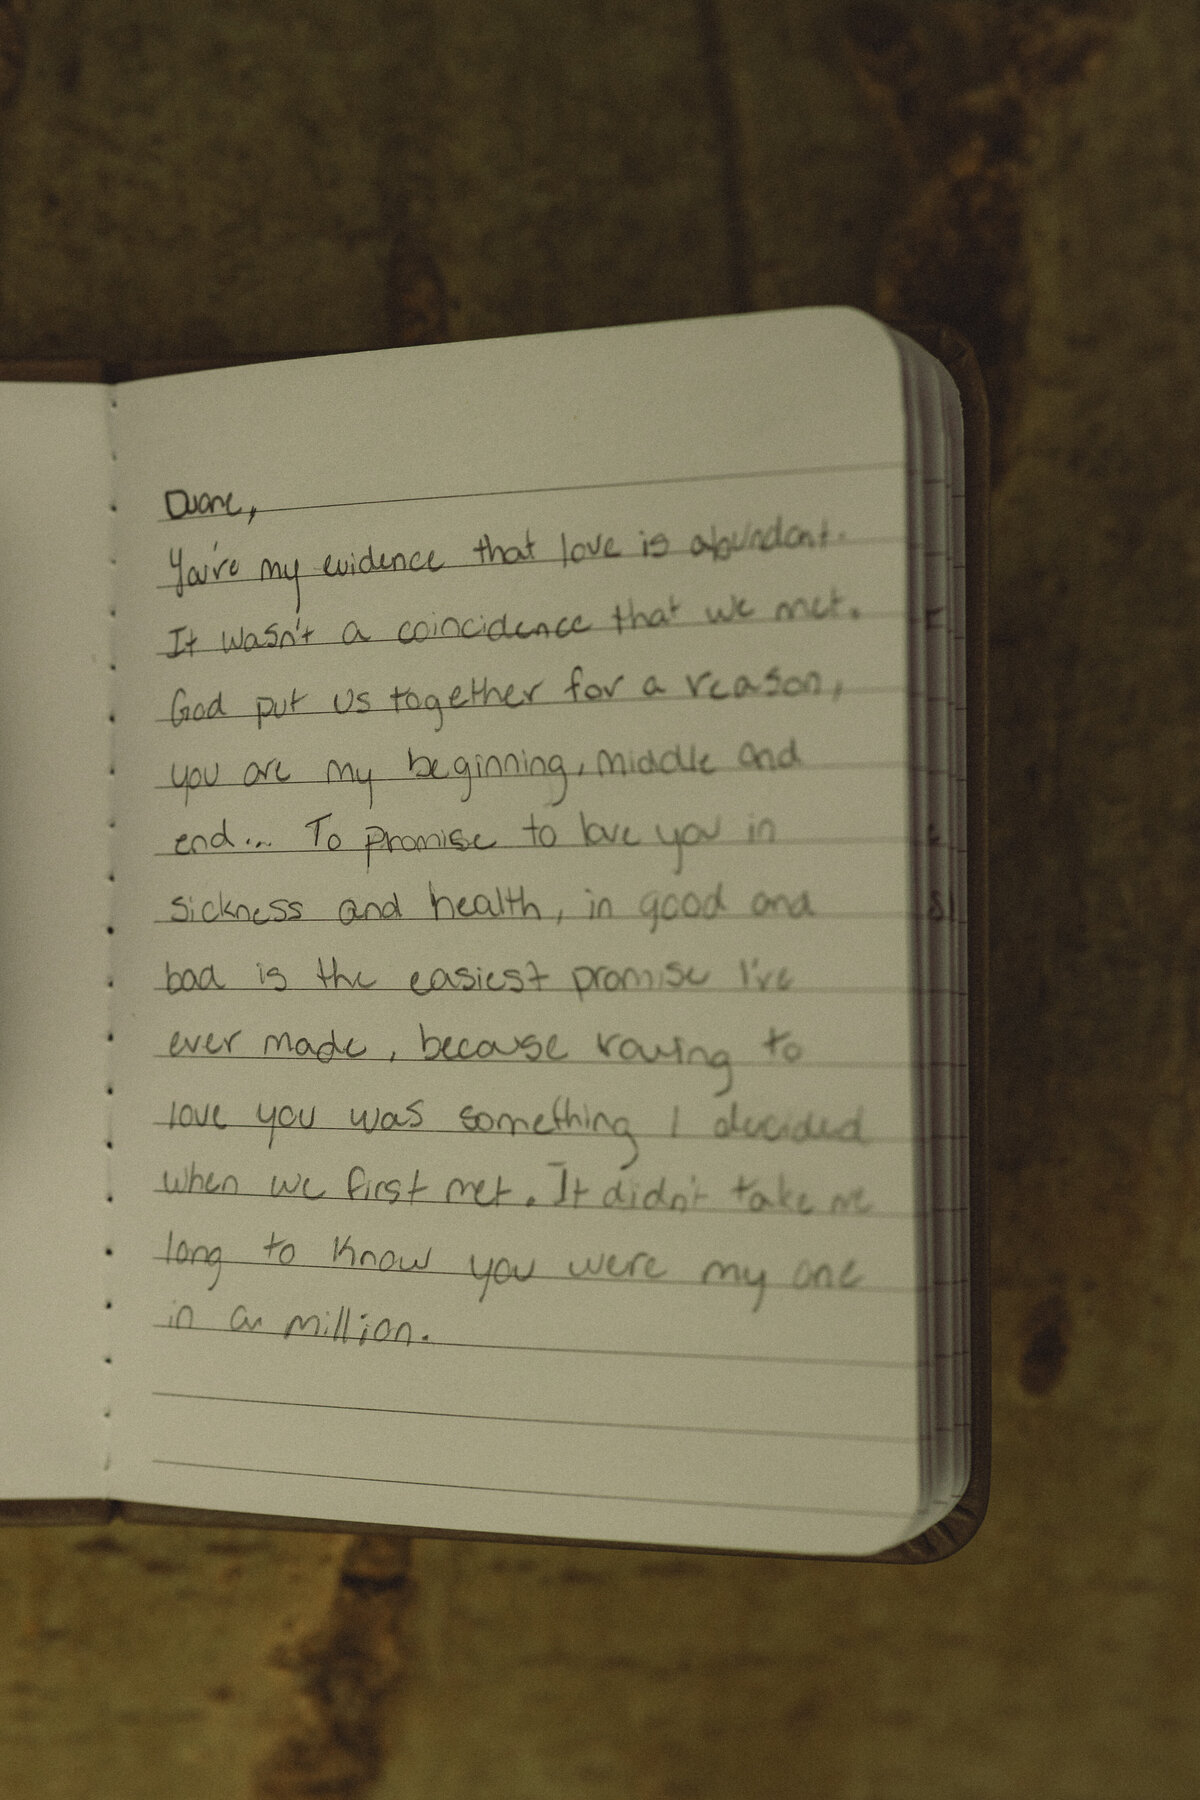 Duane,
You're my evidence that love is abundant.
It wasn't a coincidence that we met.
God put us together for a reason,
you are my beginning, middle and
end... To promise to love you in
sickness and health, in good and
bad is the easiest promise I've
ever made, because to
love you was something I decided
when we first met. It didn't take me
long to know you were my one
in a million.